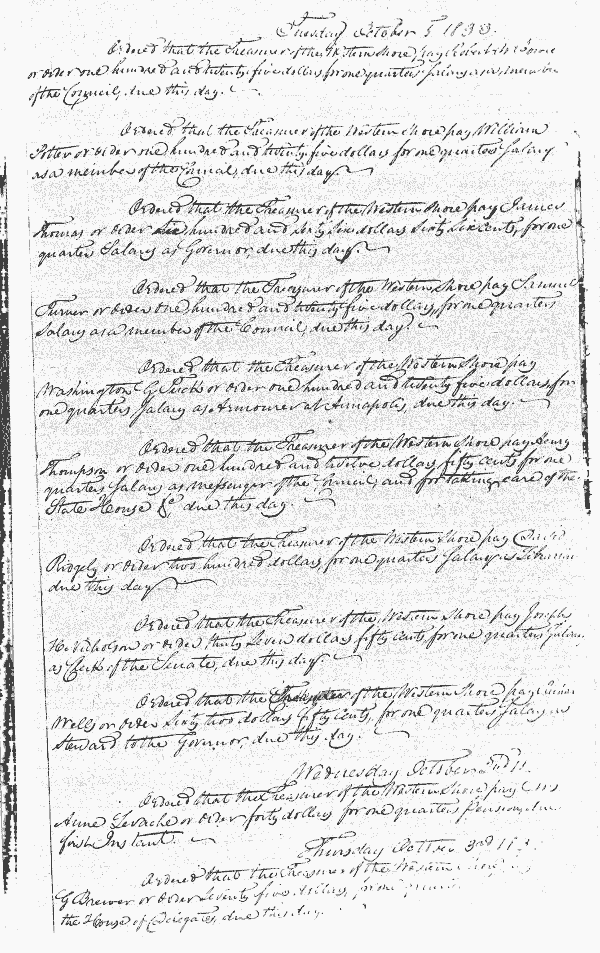 Tuesday October 1 1833.
Ordered that the Treasurer of the Western Shore pay
or order one hundred and twenty five dollars for one quarters Salary as a member
of the Council, due this day.
Ordered that the Treasurer of the Western Shore pay William
Potter or order one hundred and twenty five dollars for one quarters Salary
as a member of the Council, due this day.
Ordered that the Treasurer of the Western Shore pay James
Thomas or order Six hundred and Sixty Six dollars Sixty Six cents, for one
quarters Salary as Governor, due this day.
Ordered that the Treasurer of the Western Shore pay Samuel
Turner or order One hundred and twenty five dollars, for one quarters
Salary as a member of the Council, due this day.
Ordered that the Treasurer of the Western Shore pay
Washington G or order one hundred and twenty five dollars, for
one quarters Salary as Armourer at Annapolis, due this day.
Ordered that the Treasurer of the Western Shore pay
Thompson or order one hundred and twelve dollars fifty cents for one
quarters Salary as messenger of the Council, and for taking care of the
State House &c due this day.
Ordered that the Treasurer of the Western Shore pay David
Ridgely or order two hundred dollars for one quarters Salary as Librarian
due this day.
Ordered that the Treasurer of the Western Shore pay Joseph
H. Nicholson or order thirty Seven dollars fifty cents, for one quarters Salary
as Clerk of the Senate, due this day.
Ordered that the Treasurer of the Western Shore pay
Wells or order Sixty two dollars fifty cents, for one quarters Salary as
Steward to the Governor, due this day.
Wednesday October 2nd
Ordered that the Treasurer of the Western Shore pay Mrs
Anne or order forty dollars for one quarters Pension, due
first Instant.
Thursday October 3rd
Ordered that the Treasurer of the Western
G Brewer or order Seventy five dollars, for one
the House of Delegates, due this day.